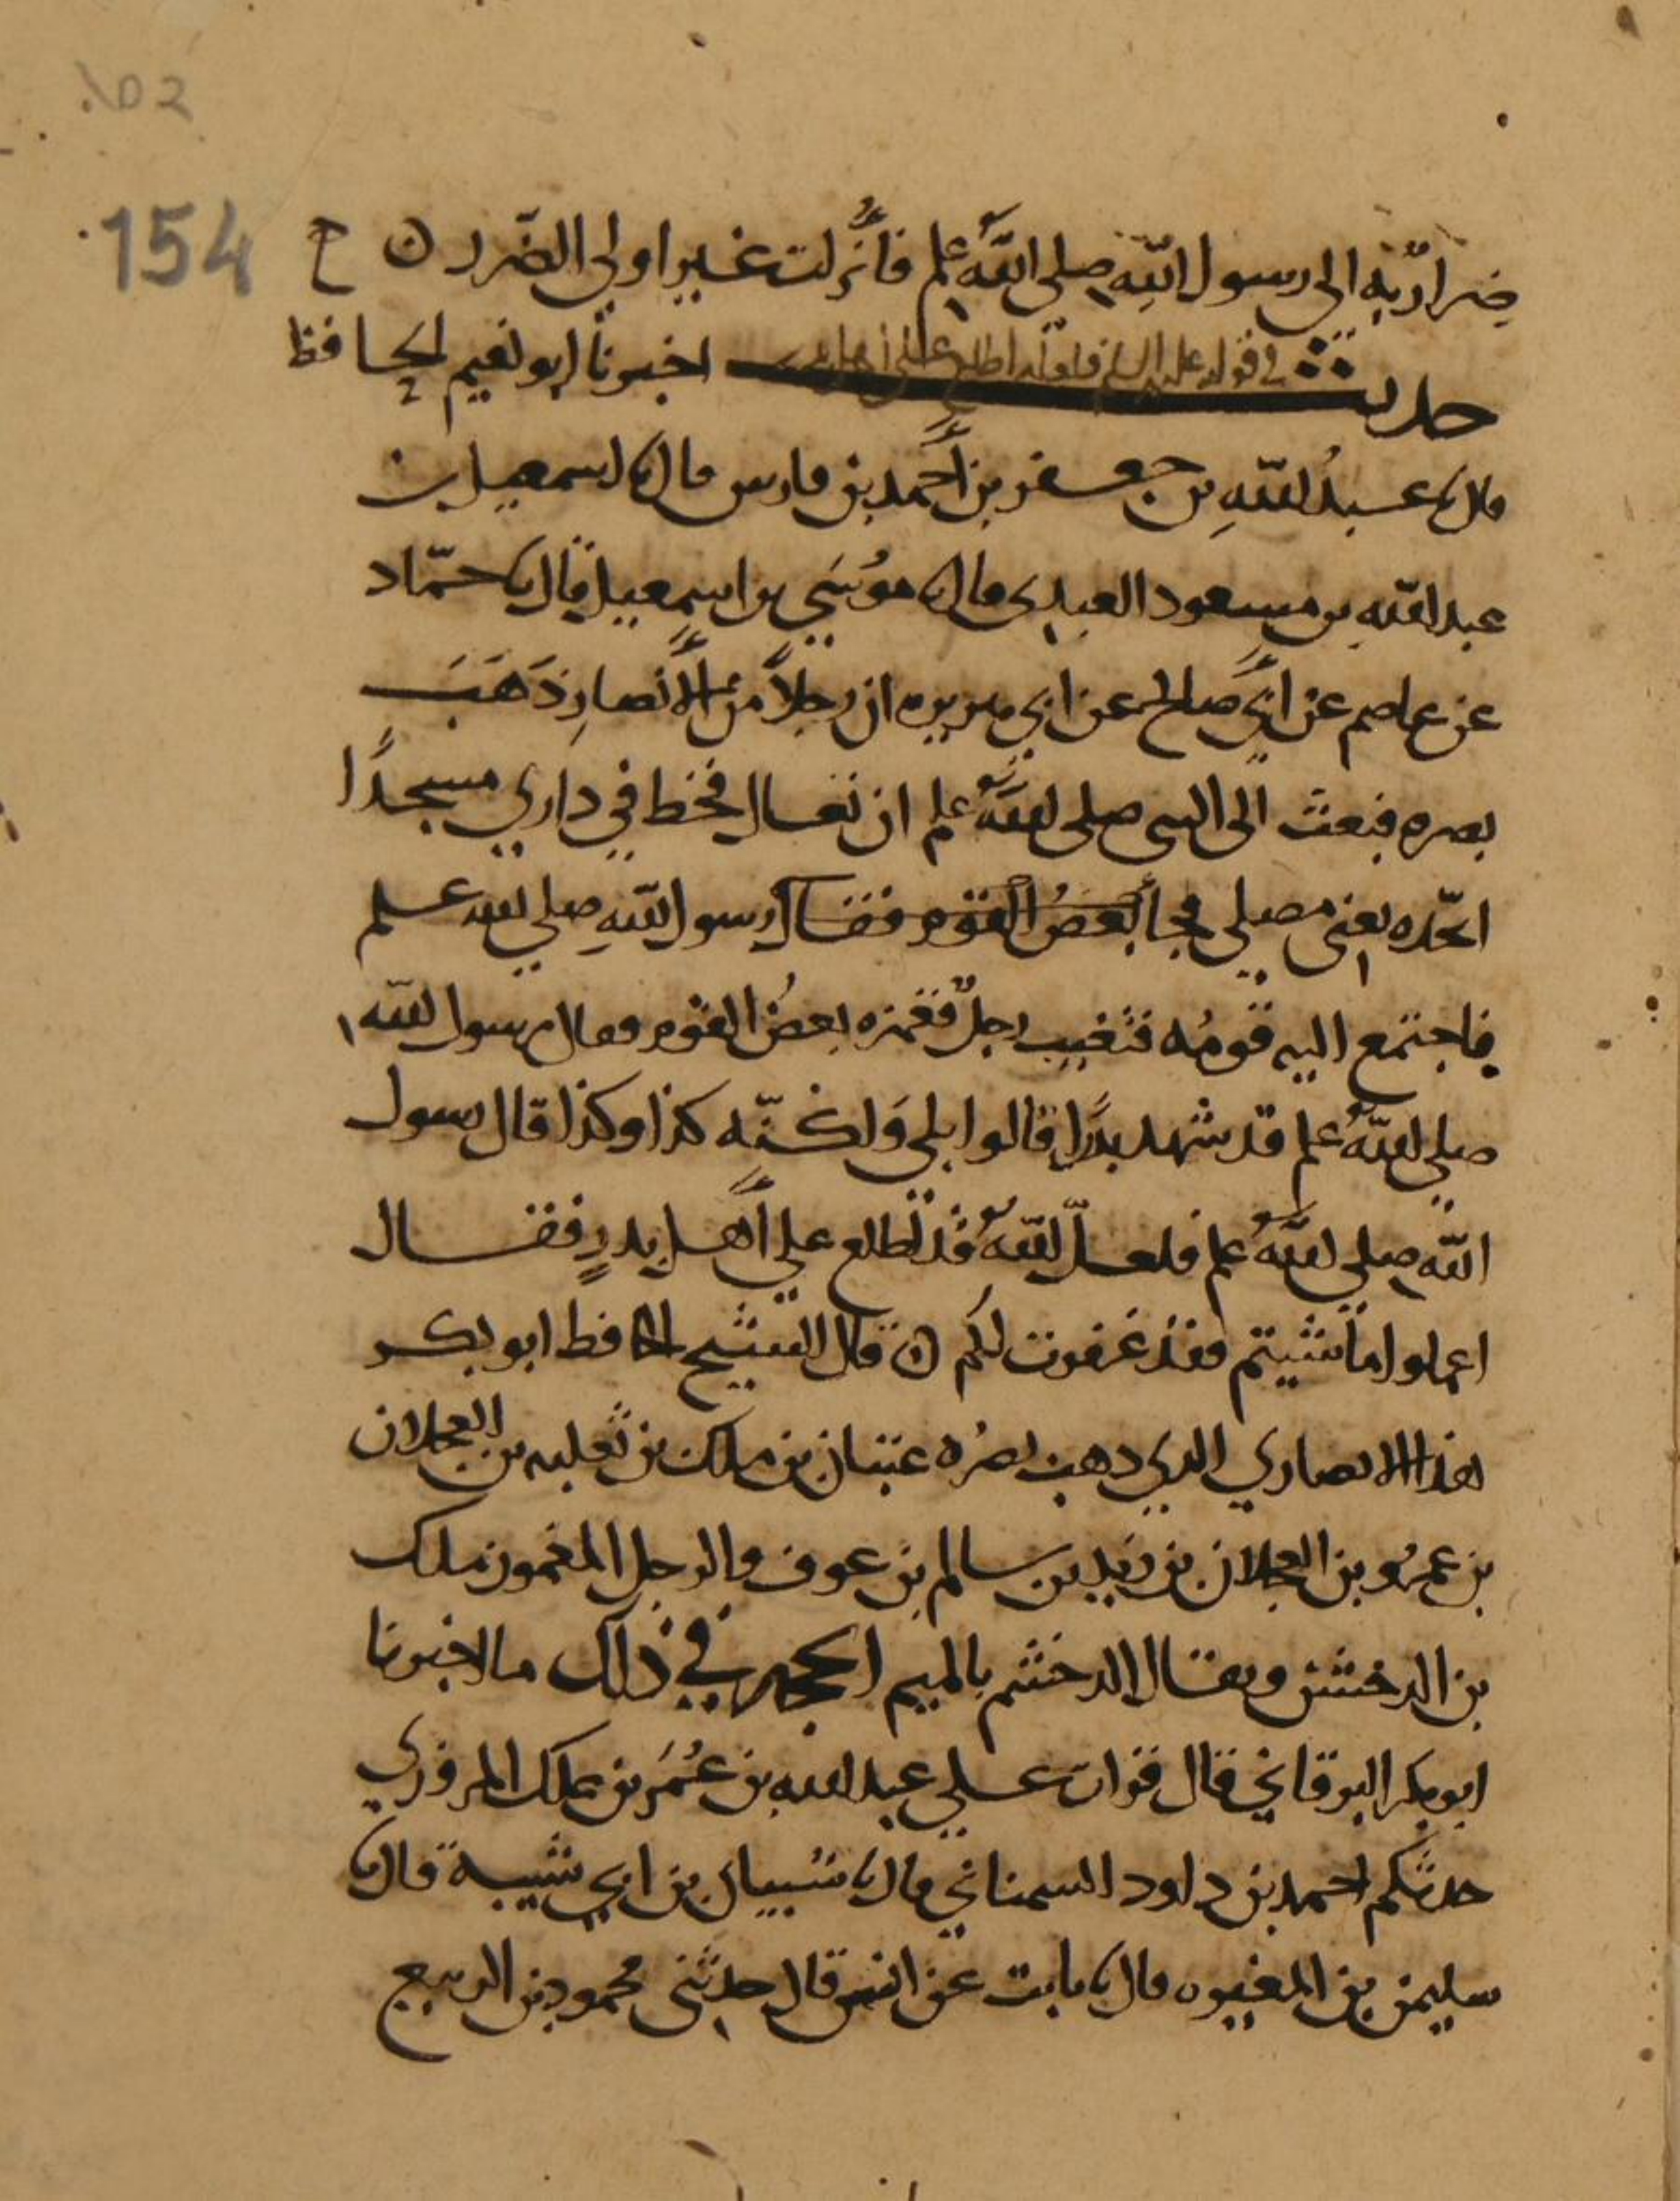 ١٥٢
154
ضرارته الى رسول الله صلى الله علم فأنزلت غير اولي الضرر ن ح
حديث في قوله عليه السلم فلعل الله اطلع على اهل بدر اخبرنا ابو نعيم الحافظ
قال نا عبد الله بن جعفر بن أحمد بن فارس قال نا اسمعيل بن
عبد الله بن مسعود العبدي قال نا موسي بن اسمعيل قال نا حمّاد
عن عاصم عن ابي صالح عن ابي هريره ان رجلاً من الأنصار ذَهَبَ
بصره فبعث الى النبي صلى الله علم ان تعال فخط في داري مسجدًا
اتخذه يعني مصلي فجا بعضُ القوم فقال رسول اللهِ صلي الله علم
فاجتمع اليه قومُه فتغيب رجلٌ فغمزه بعضُ القوم فقال رسول الله
صلي اللهُ علم قد شهد بدرًا قالوا بلي وَلكنّه كذا وكذا قال رسول
الله صلي اللهُ علم فلعلّ اللهُ قد اطلع علي أهل بدرٍ فقال
اعملوا ما شيتم فقد غفرت لكم ن قال الشيخ الحافظ ابو بكر
هذا الانصاري الذي ذهب بصرُه عتبان بن ملك بن ثعلبه بن العجلان
بن عمرو بن العجلان بن زيد بن سالم بن عوف والرجل المغموز ملك
بن الدخشن ويقال الدخشم بالميم الحجه في ذلك ما اخبرنا
ابو بكر البرقاني قال قرات علي عبد الله بن عُمَر بن علك المروزي
حدثكم احمد بن داود السمناني قال نا شيبان بن ابي شيبة قال نا
سليمن بن المغيره قال نا ثابت عن انس قال حدثني محمود بن الربيع